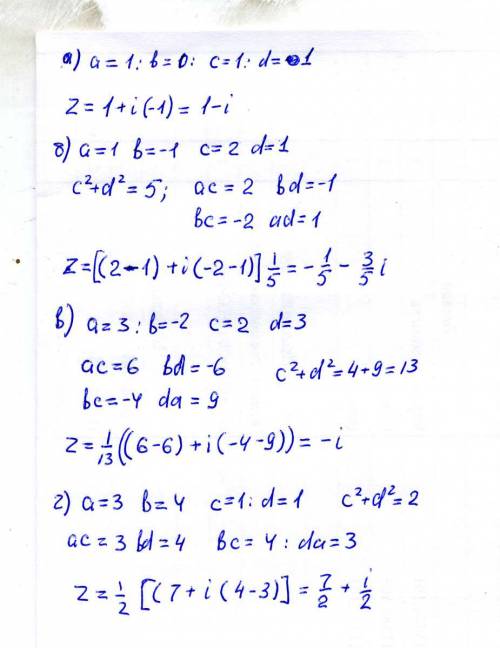 а) a=1; b=0; c=1; d=1
z=1+i(-1)=1-i
б) a=1 b=-1 c=2 d=1
c²+d²=5; ac=2 bd=-1
bc=-2 ad=1
z=[(2-1)+i(-2-1)]1/5=-1/5-3/5i
в) a=3; b=-2 c=2 d=3
ac=6 bd=-6 c²+d²=4+9=13
bc=-4 da=9
z=1/13((6-6)+i(-4-9))=-i
г) a=3 b=4 c=1; d=1 c²+d²=2
ac=3 bd=4 bc=4; da=3
z=1/2[(7+i(4-3)]=7/2+i/2